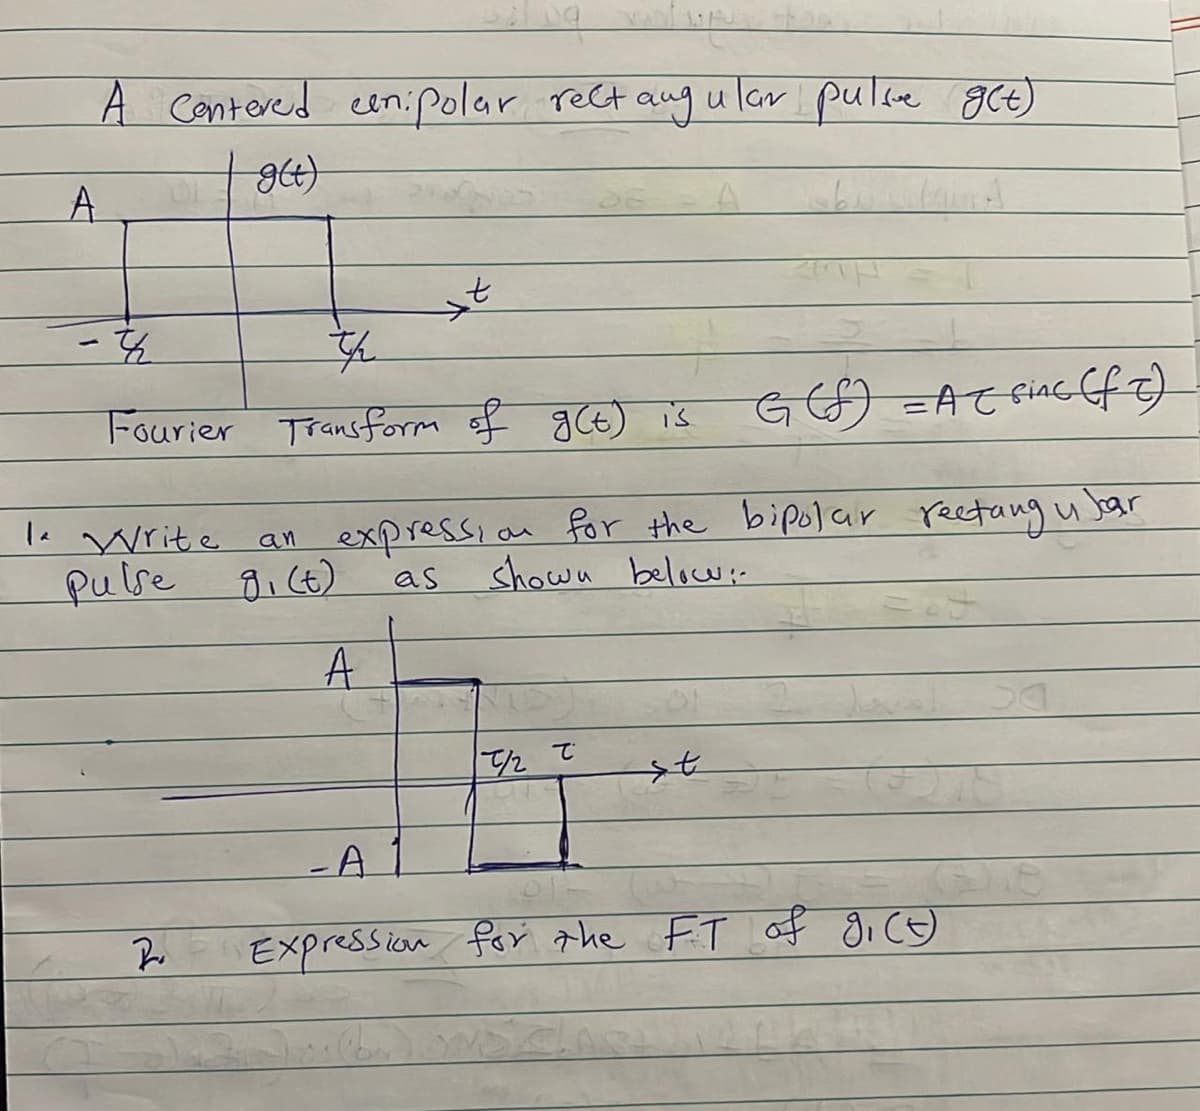 A Centered unipolar rectangular pulse g(t)
g(t)
A
t
-τ/2
τ/2
Fourier Transform of g(t) is G(f) = Aτ sinc(fτ)
1. Write an expression for the bipolar rectangular
pulse g₁(t) as shown below:-
A
τ/2 τ
t
-A
2. Expression for the F.T of g₁(t)